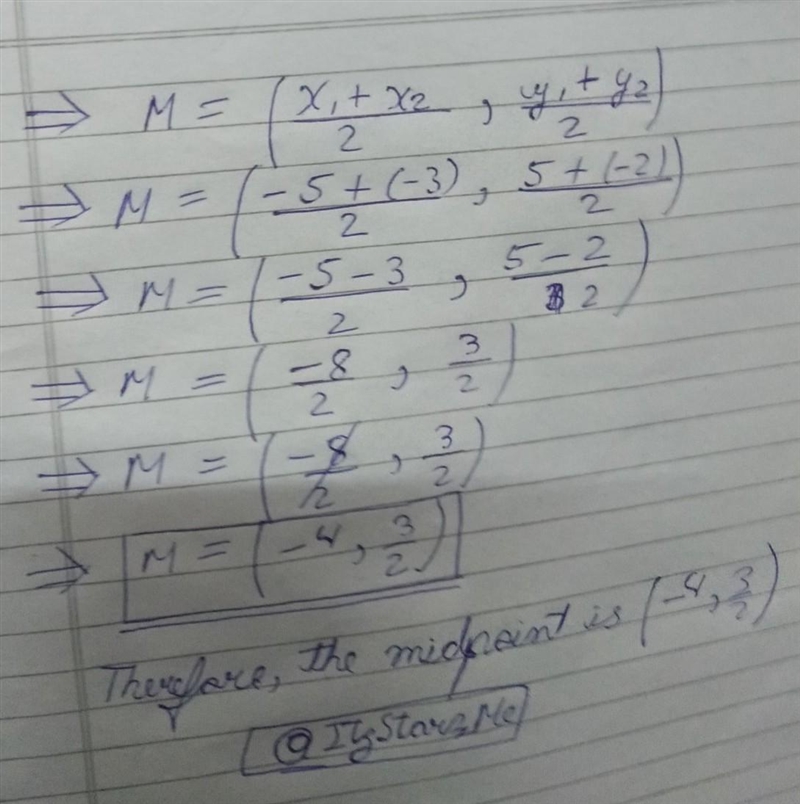 ⇒ M = (x₁ + x₂ / 2 , y₁ + y₂ / 2)
⇒ M = (-5 + (-3) / 2 , 5 + (-2) / 2)
⇒ M = (-5 - 3 / 2 , 5 - 2 / 2)
⇒ M = (-8 / 2 , 3 / 2)
⇒ M = (-8 / 2 , 3 / 2)
⇒ M = (-4 , 3 / 2)
Therefore, the midpoint is (-4, 3/2)
@ItzStarzMe